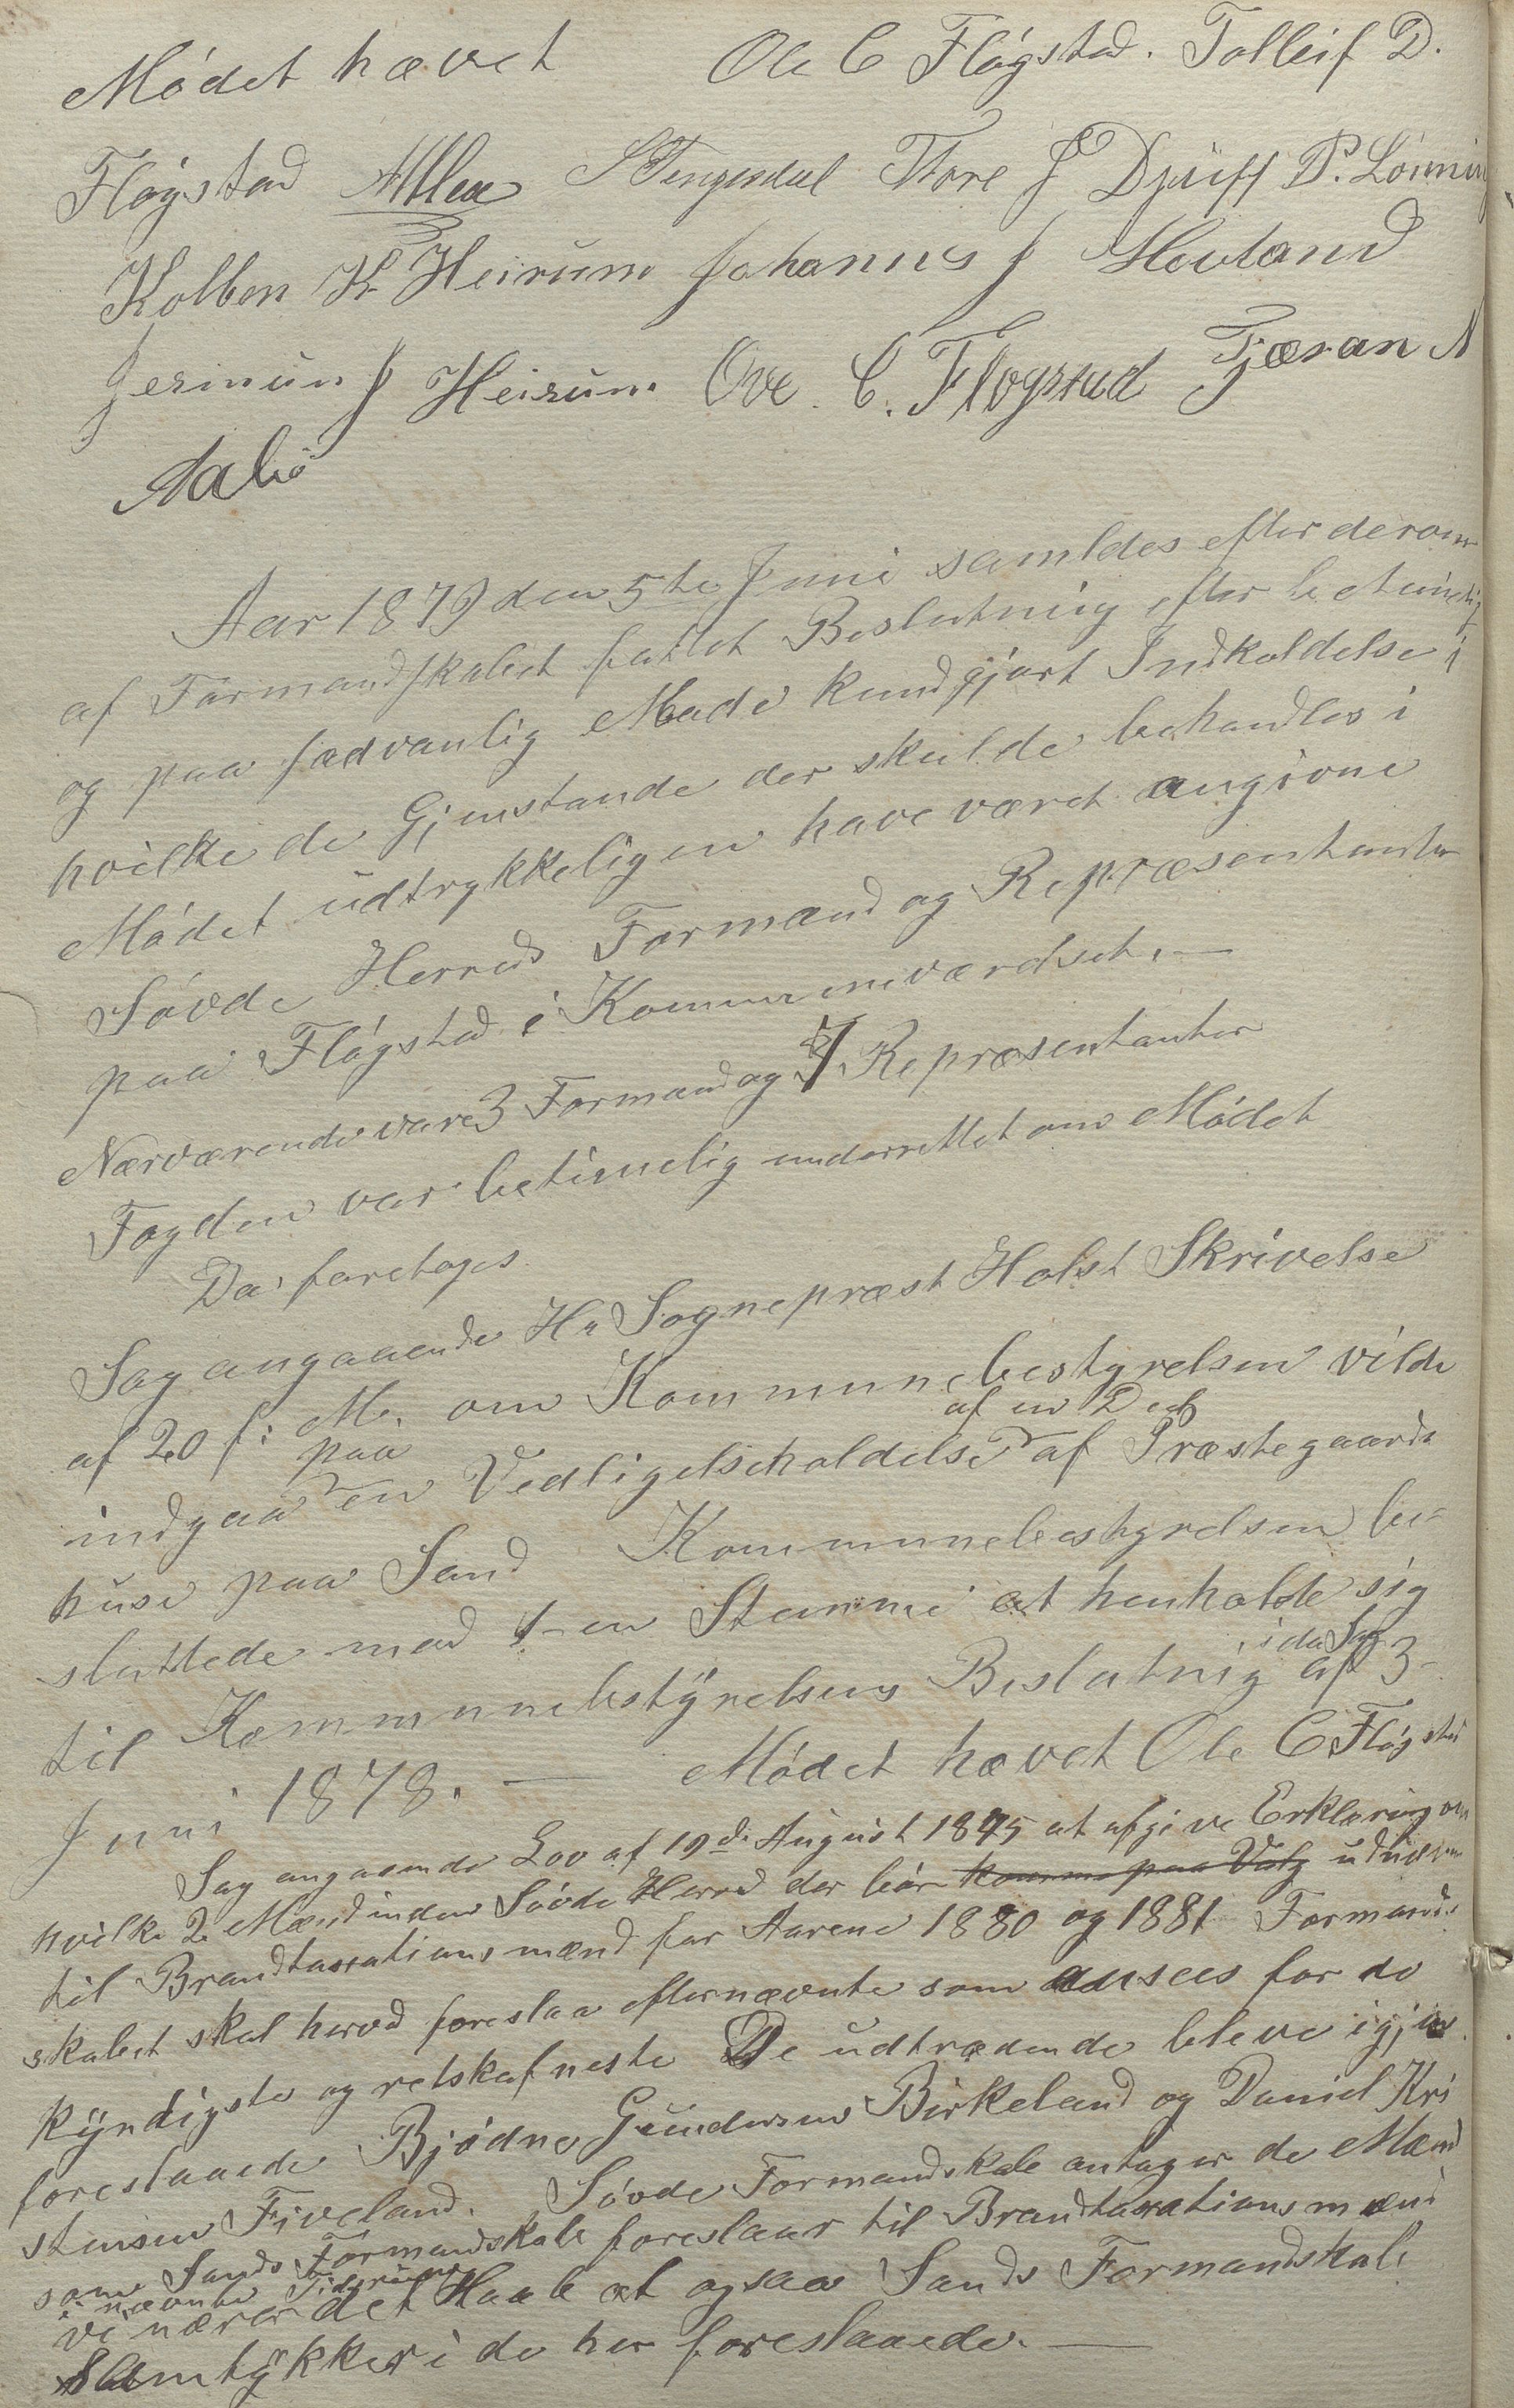 Mødet hævet Ole C Fløgstad. Tolleif D.
Fløgstad S Tengesdal Tore J Djuff P. Lönning
Kolben K. Heirum Johannes J Hovland
Jermun J Heirum Ove. C. Flogstad Tjæran N
Aabø
Aar 1879 den 5te Juni samledes efter derom
af Formandskabet fattet Beslutning efter betimelig
og paa sædvanlig Maade kundgjort Indkaldelse i
hvilke de Gjenstande der skulde behandles i
Mødet udtrykkeligen have været angivne
Søvde Herreds Formænd og Repræsentanter
paa Fløgstad i Kommuneværelset. —
Nærværende vare 3 Formænd og 7 Repræsentanter
Fogden var betimelig underrettet om Mødet
Da foretoges
Sag angaaende Hr Sognepræst Holst Skrivelse
af 20 f: M. om Kommunebestyrelsen vilde
indgaa paa en Vedligeholdelse af en Del af Præstegaards
huse paa Sand Kommunebestyrelsen be-
sluttede mod 1 en Stemme at henholde sig
til Kommunebestÿrelsens Beslutnig i da Sag af 3-
Juni 1878. — Mødet hævet Ole C Fløgstad
Sag angaaende Lov af 19de August 1845 at afgive Erklæring om
hvilke 2 Mænd inden Søvde Herred der bør komme paa Valg udnævnes
til Brandtaxationsmænd for Aarene 1880 og 1881 Formands
skabet skal herved foreslaa efternævnte som ansees for de
kÿndigste og retskafneste De udtrædende bleve igjen
foreslaaede Bjødne Gundersen Birkeland og Daniel Kri
stensen Fiveland. Søvde Formandskab antager de Mænd
som Sands Formandskab foreslaar til Brandtaxationsmænd
i nævnte Tidsrum
vi nærer det Haab at ogsaa Sands Formandskab
samtÿkker i de her foreslaaede. —